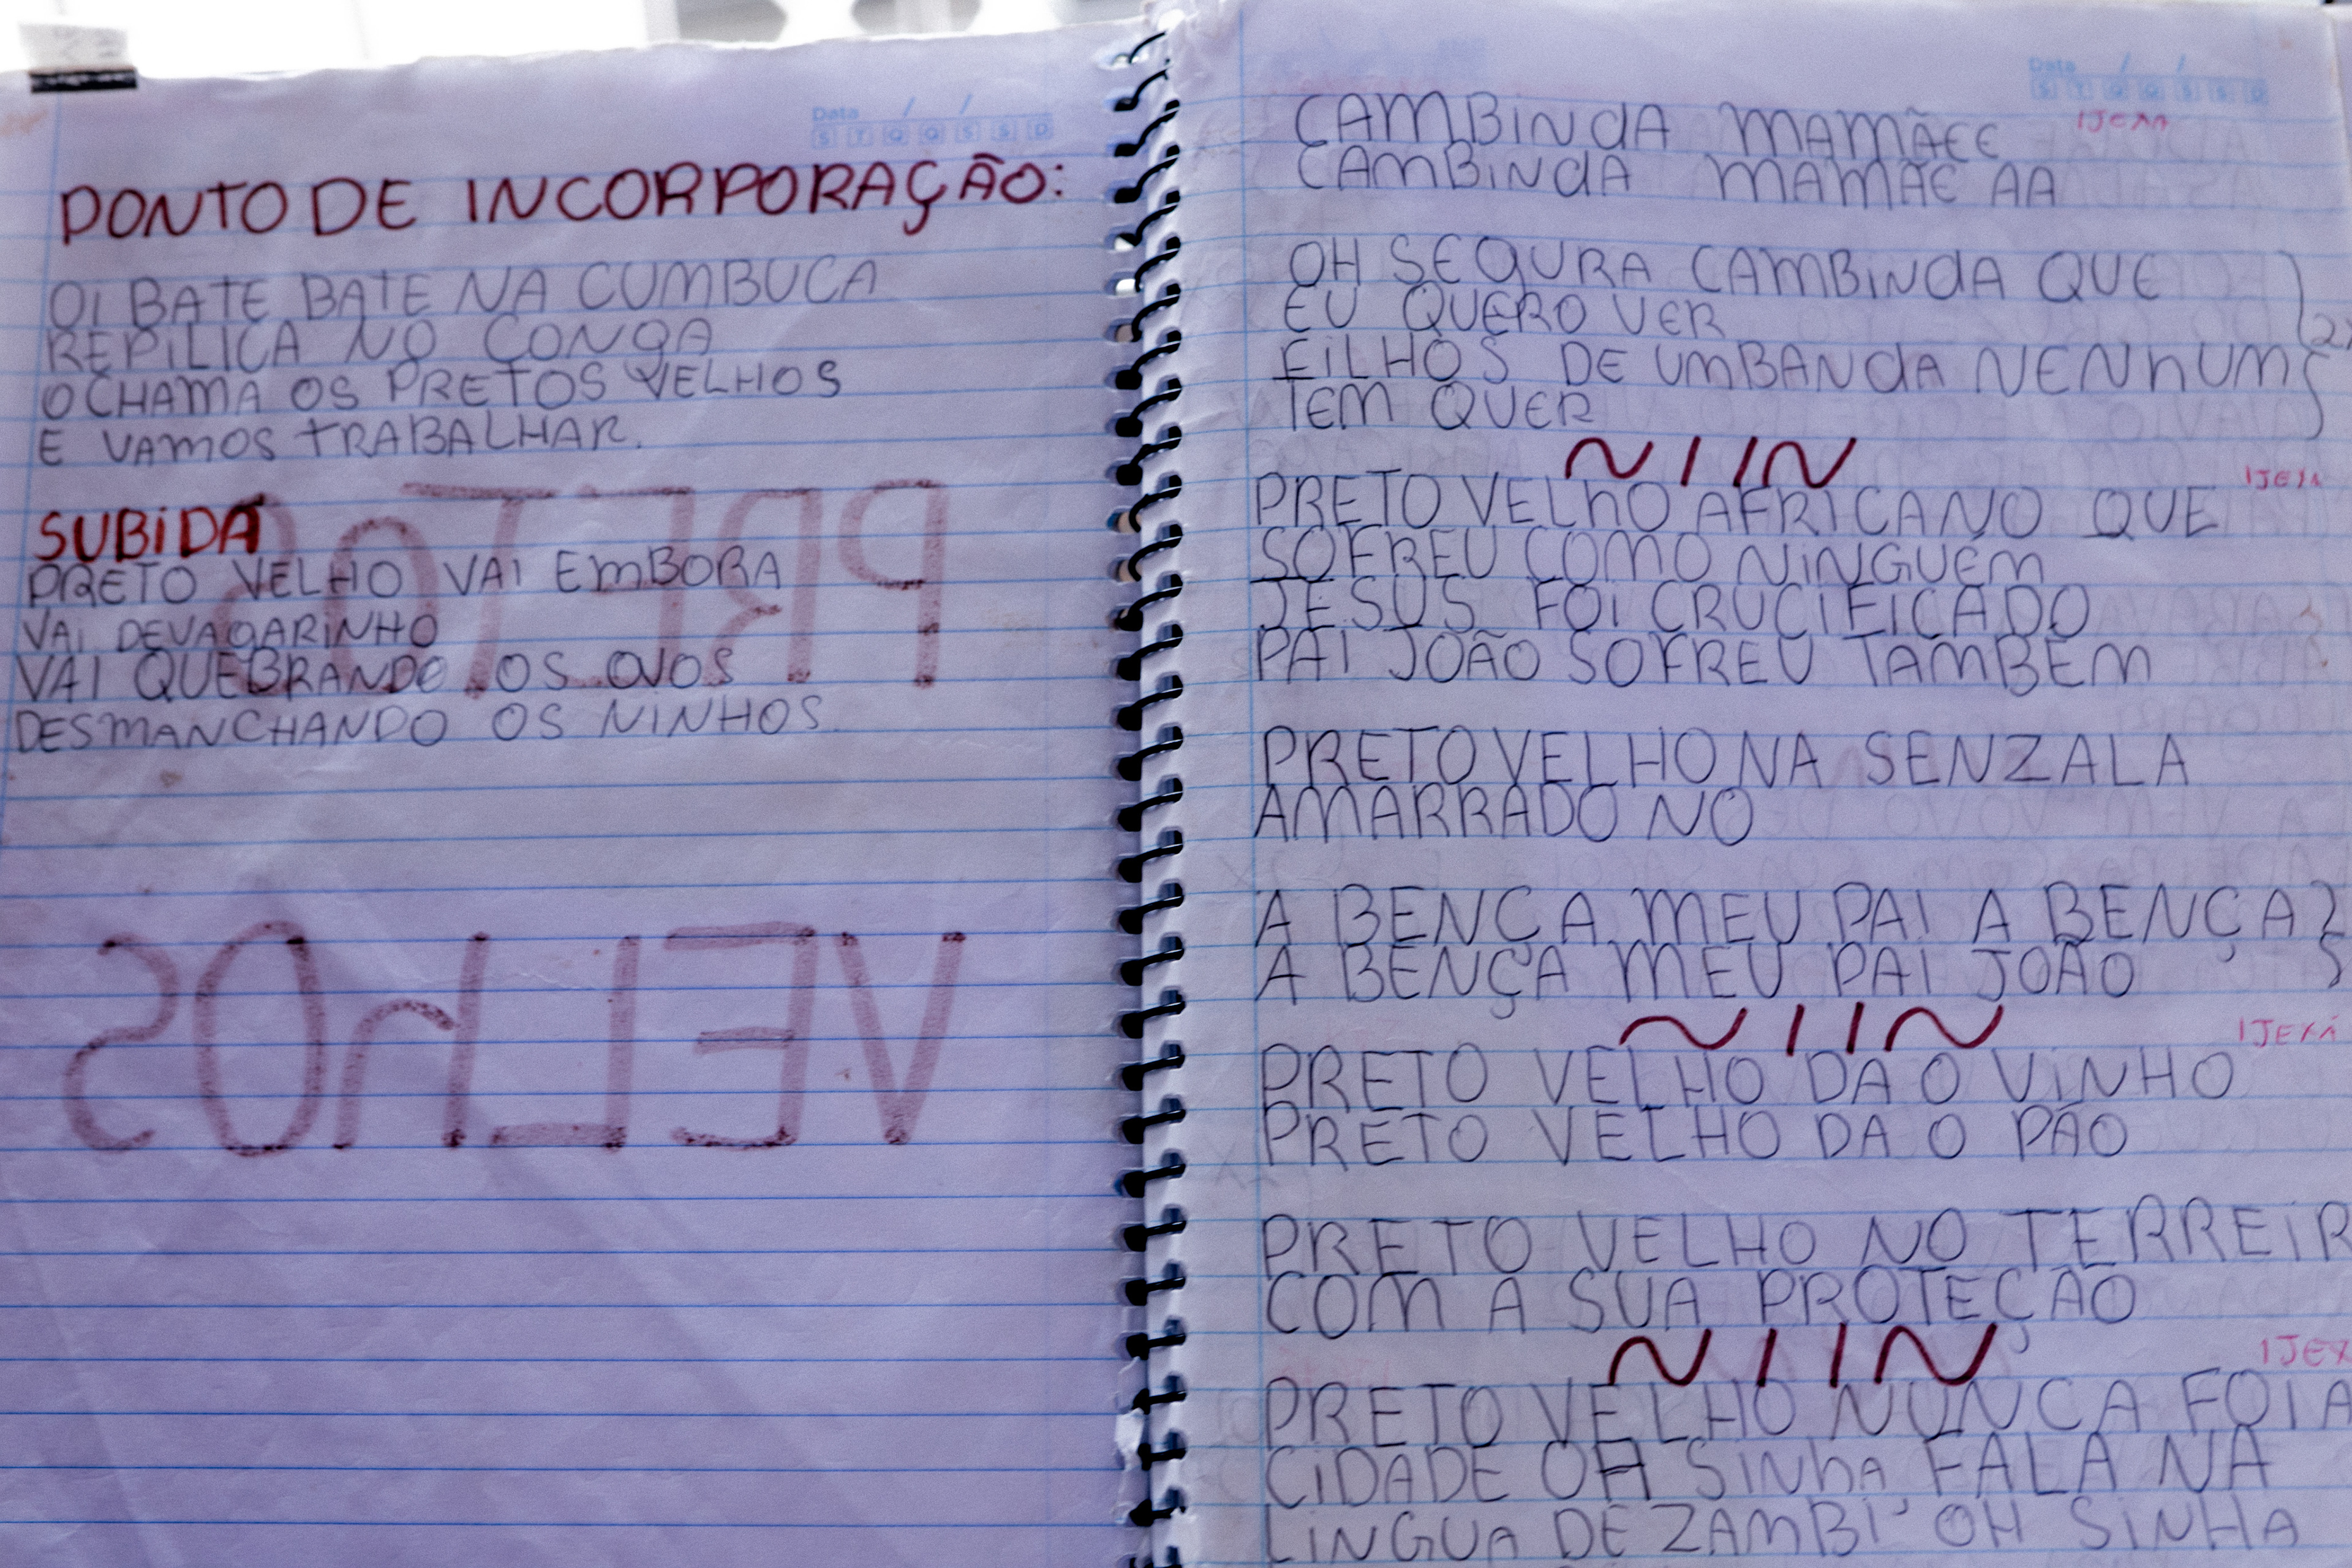 Data / /
S T Q Q S S D
PONTO DE INCORPORAÇÃO:
OI BATE BATE NA CUMBUCA
REPILICA NO CONGA
O CHAMA OS PRETOS VELHOS
E VAMOS TRABALHAR.
SUBIDA
PRETO VELHO VAI EMBORA
VAI DEVAGARINHO
VAI QUEBRANDO OS OVOS
DESMANCHANDO OS NINHOS.
PRETOS
VELHOS
Data / /
S T Q Q S S D
CAMBINDA MAMÃEE IJEXA
CAMBINDA MAMÃE AA
OH SEGURA CAMBINDA QUE
EU QUERO VER
FILHOS DE UMBANDA NENHUM
TEM QUER
IJEXA
PRETO VELHO AFRICANO QUE
SOFREU COMO NINGUÉM
JESUS FOI CRUCIFICADO
PAI JOÃO SOFREU TAMBÉM
PRETO VELHO NA SENZALA
AMARRADO NO
A BENÇA MEU PAI A BENÇA
A BENÇA MEU PAI JOÃO
IJEXÁ
PRETO VELHO DA O VINHO
PRETO VELHO DA O PÃO
PRETO VELHO NO TERREIR
COM A SUA PROTEÇÃO
IJEX
PRETO VELHO NUNCA FOI A
CIDADE OH SINHA FALA NA
LINGUA DE ZAMBI OH SINHA